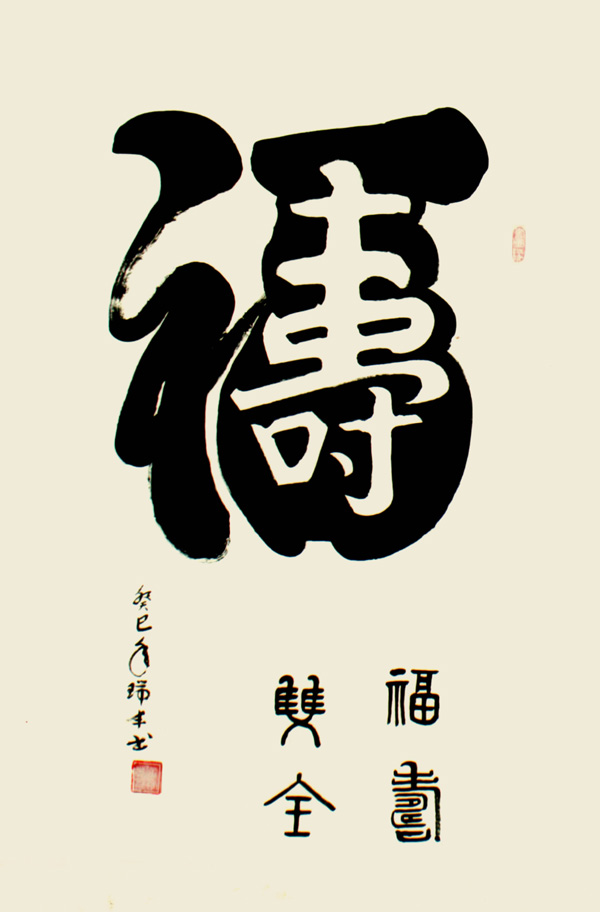 福
壽
福壽
雙全
癸巳年瑞丰书